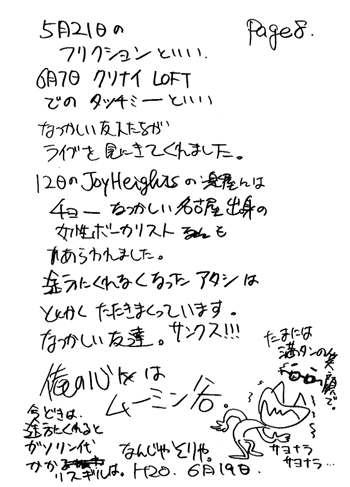 Page8.
5月21日の
フリクションといい、
6月7日 クリナイ LOFT
での タッチミーといい
なつかしい友人たちが
ライブを見にきてくれました。
12日のJoyHeightsの
チョーなつかしい名古屋出身の
女性ボーカリスト も
あらわれました。
途方にくれなくなったアタシは
とにかく たたきまくっています。
なつかしい友達。サンクス!!!
俺の心は
ムーミン谷。
たまには
満タンの笑顔で。
サヨナラ
サヨナラ…
今どきは、
途方にくれると
ガソリン代
かかリスギルしは。
なんじゃそりゃ。
H20. 6月19日.